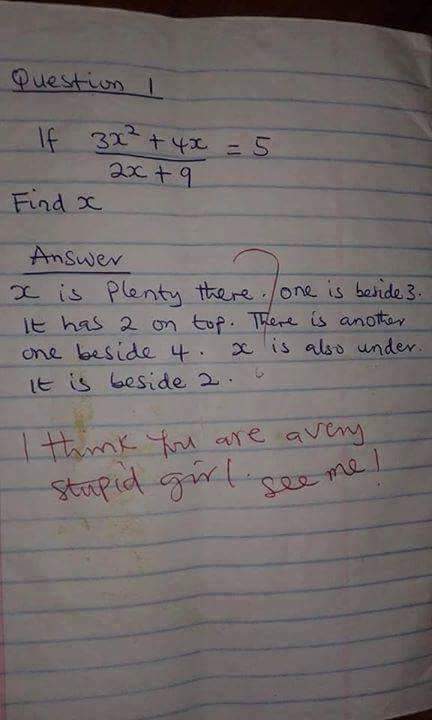 Question 1
If 3x² + 4x = 5
2x + 9
Find x
Answer
x is Plenty there. one is beside 3.
It has 2 on top. There is another
one beside 4. x is also under.
It is beside 2.
I think you are a very
stupid girl. see me!